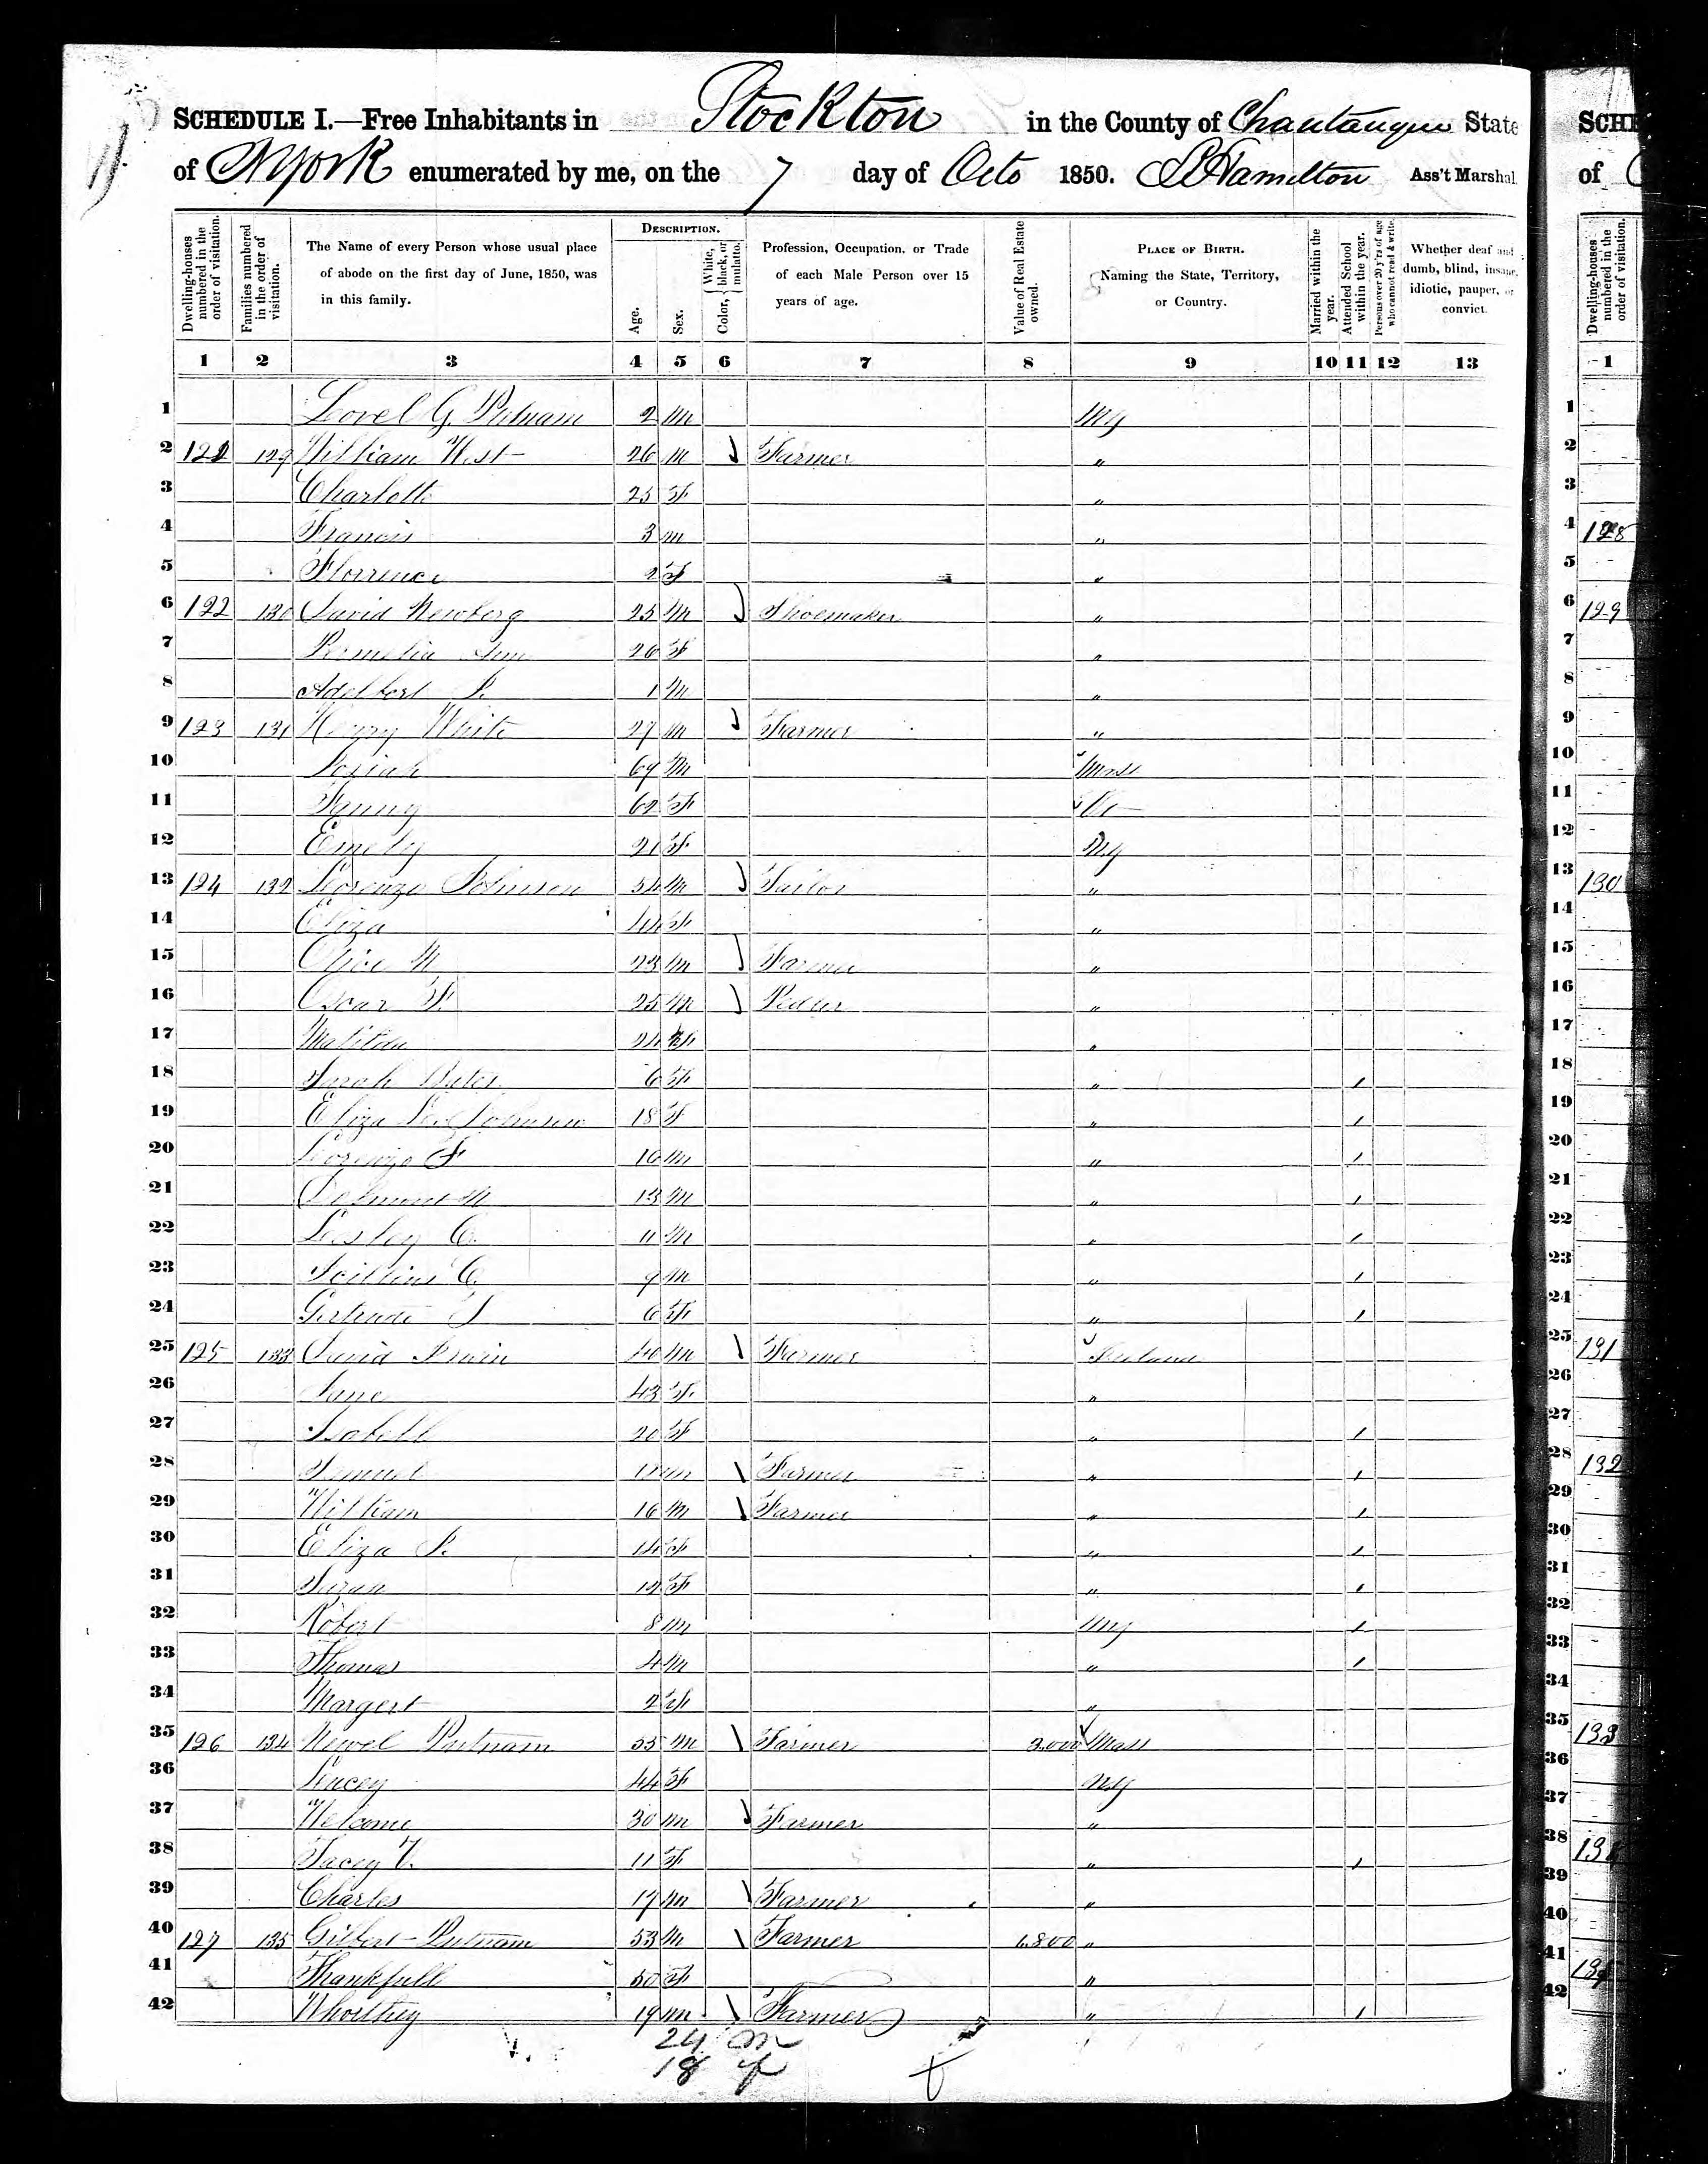 SCHEDULE I.—Free Inhabitants in Stockton in the County of Chautauque State
of NYork enumerated by me, on the 7 day of Octo 1850. Hamilton Ass't Marshal.
Dwelling-houses numbered in the order of visitation.
Families numbered in the order of visitation.
The Name of every Person whose usual place of abode on the first day of June, 1850, was in this family.
DESCRIPTION.
Age.
Sex.
Color, { White, black, or mulatto.
Profession, Occupation, or Trade of each Male Person over 15 years of age.
Value of Real Estate owned.
PLACE OF BIRTH. Naming the State, Territory, or Country.
Married within the year.
Attended School within the year.
Persons over 20 y'rs of age who cannot read & write.
Whether deaf and dumb, blind, insane, idiotic, pauper, or convict.
1 2 3 4 5 6 7 8 9 10 11 12 13
1 Lovel G. Putnam 2 M NY
2 122 129 William West 26 M Farmer "
3 Charlott 25 F "
4 Francis 3 M "
5 Florrence 2 F "
6 122 130 David Newberg 25 M Shoemaker "
7 Permelia Ann 26 F "
8 Adelbert 1 M "
9 123 131 Henry White 27 M Farmer "
10 Josiah 69 M Mass
11 Fanny 62 F Vt
12 Emely 21 F NY
13 124 132 Lorenzo Johnson 54 M Tailor "
14 Eliza 44 F "
15 23 M Farmer "
16 Oscar F. 25 M Pedler "
17 Matilda 24 F "
18 Sarah 6 F " 1
19 Eliza Johnson 18 F " 1
20 Lorenzo F 16 M " 1
21 13 M " 1
22 Lesley C. 11 M " 1
23 C. 9 M " 1
24 Gertrude 6 F " 1
25 125 133 David Irwin 40 M Farmer Ireland
26 Jane 43 F "
27 Isabell 20 F " 1
28 Samuel M Farmer " 1
29 William 16 M Farmer " 1
30 Eliza 14 F " 1
31 Suzan 12 F " 1
32 Robert 8 M NY 1
33 Thomas 4 M " 1
34 Margert 2 F "
35 126 134 Newel Putnam 55 M Farmer 2.000 Mass
36 Lucey 44 F NY
37 Welcome 30 M Farmer "
38 Tacey V. 11 F " 1
39 Charles 17 M Farmer "
40 127 135 Gilbert Putnam 53 M Farmer 6.800 "
41 Thankfull 50 F "
42 Whorthey 19 M Farmer " 1
24 m
18 f
SCHE
of
Dwelling-houses numbered in the order of visitation.
1
1
2
3
4 128
5
6 129
7
8
9
10
11
12
13 130
14
15
16
17
18
19
20
21
22
23
24
25 131
26
27
28 132
29
30
31
32
33
34
35 133
36
37
38
39
40
41
42